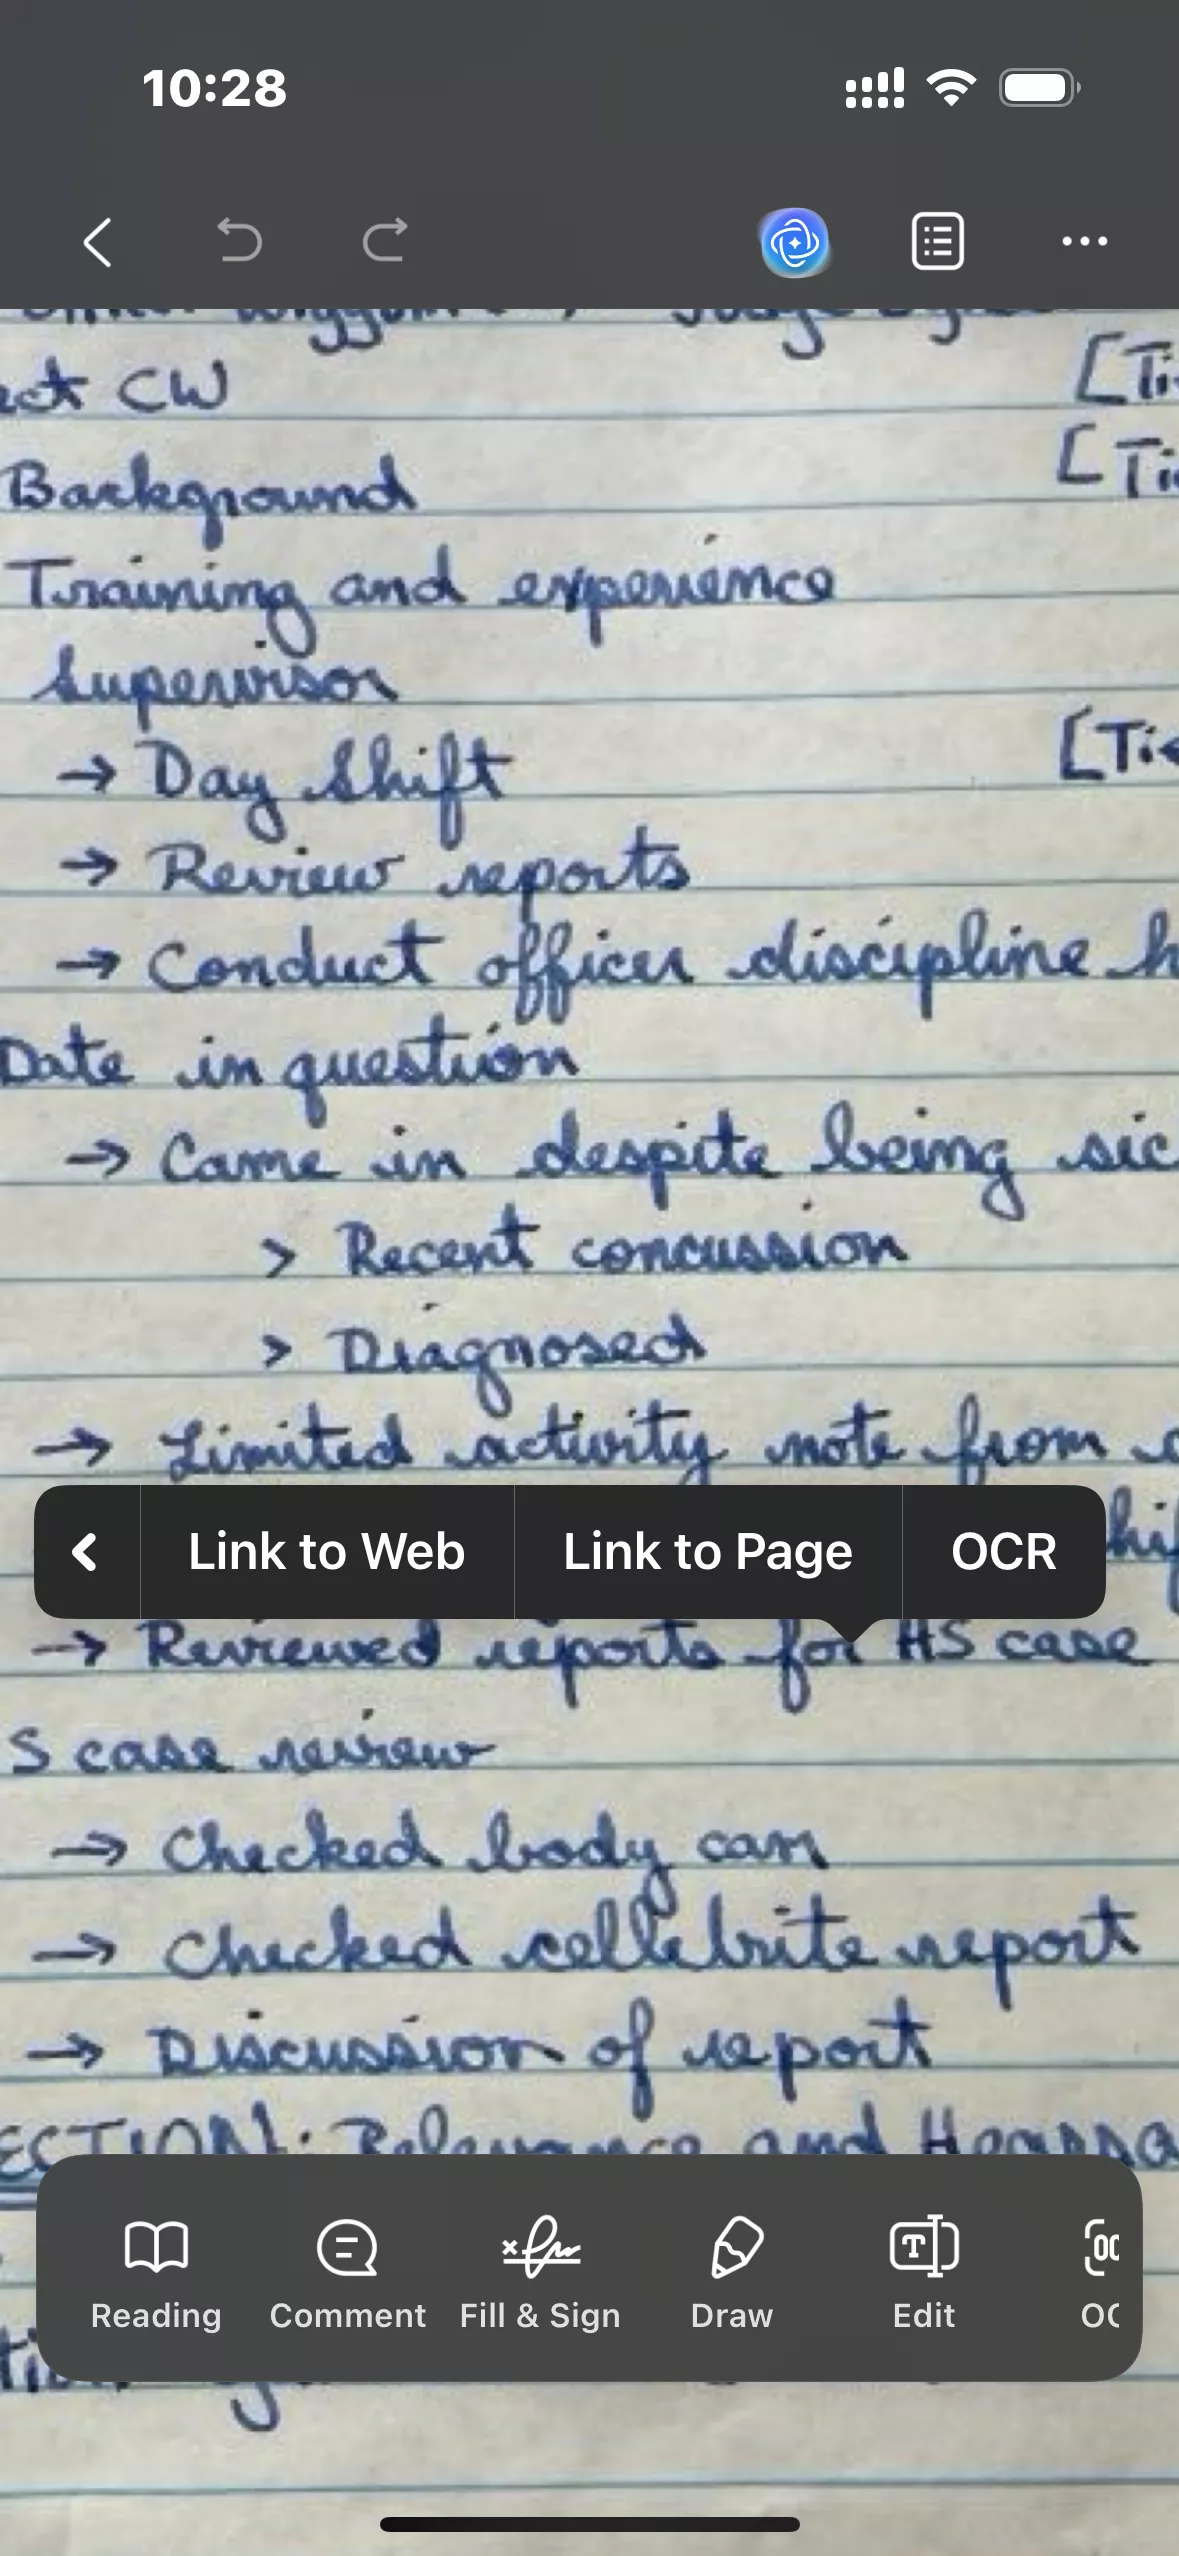 10:28
ect CW [Ti
Background [Ti
Training and experience
Supervisor
→ Day Shift [Ti
→ Review reports
→ Conduct officer discipline h
Date in question
→ Came in despite being sic
> Recent concussion
> Diagnosed
→ Limited activity note from
Link to Web Link to Page OCR
→ Reviewed reports for HS case
S case review
→ Checked body cam
→ Checked cellebrite report
→ Discussion of report
ECTION: Relevance and Hearsa
Reading Comment Fill & Sign Draw Edit OC